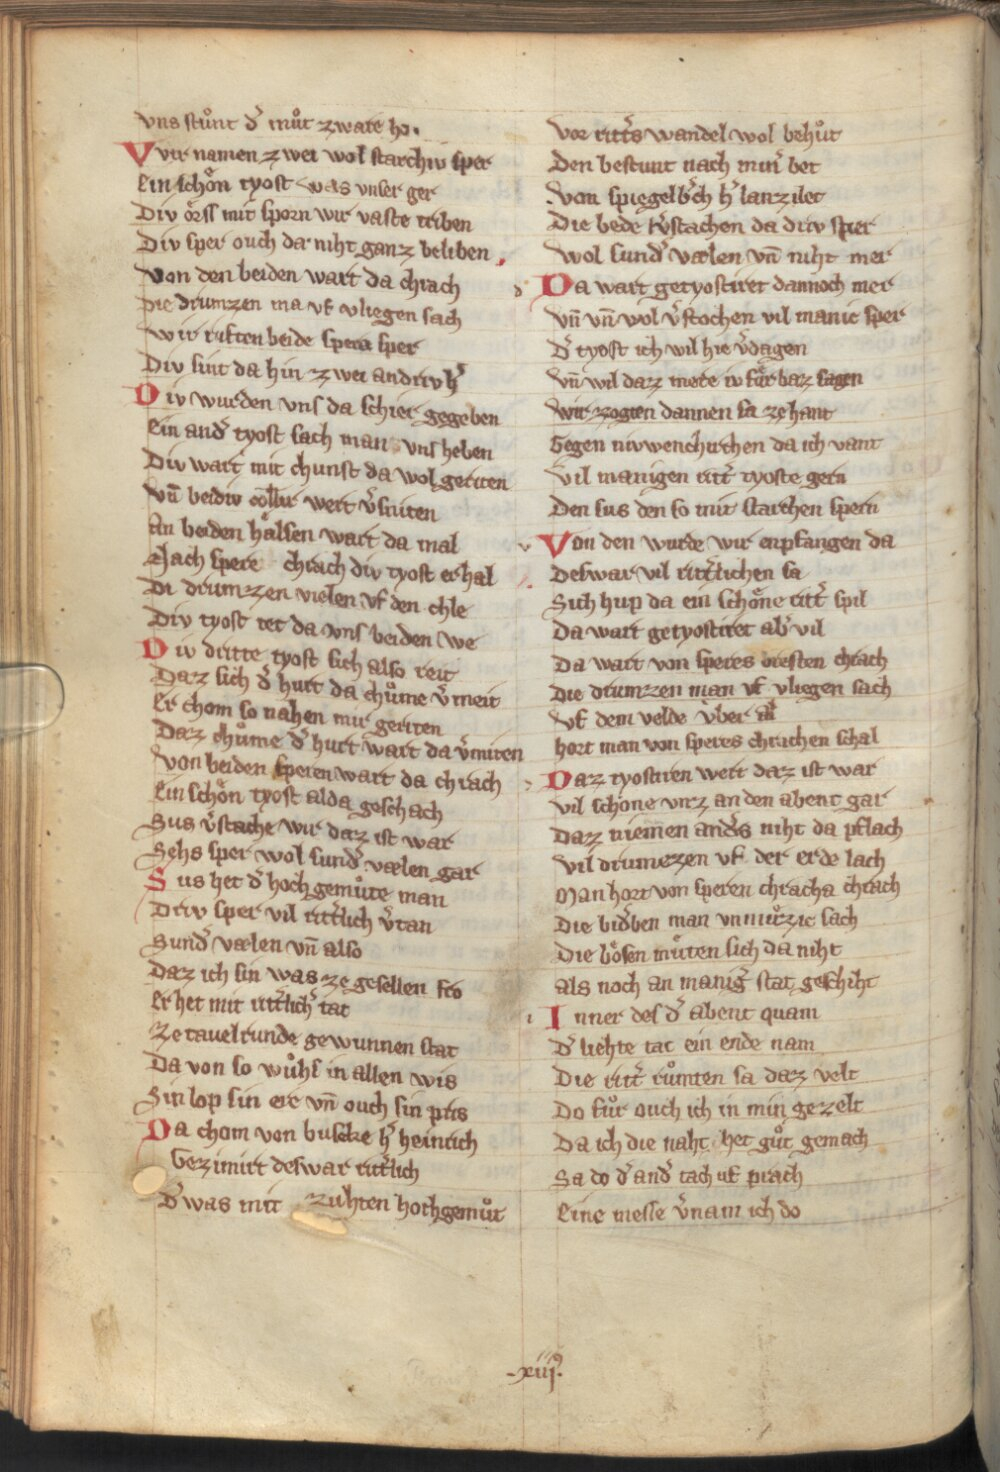 vns stuͦnt d̾ muͦt zware ho.
Vvir namen zwei wol starchiv sper
Ein schoͤn tyost was vnser ger
Div oͤrss mit sporn wir vaste triben
Div sper ouch da niht ganz beliben
Von den beiden wart da chrach
Die drumzen ma vf vliegen sach
Wir riften beide spera sper
Div sint da hin zwei andriv h̾
Div wurden vns da schier gegeben
Ein and̾ tyost sach man vns heben
Div wart mit chunst da wol geriten
Vn̄ beidiv collir wert v̾sniten
An beiden haͤlsen wart da mal
Nach spere chrach div tyost erhal
Di drumzen vielen vf den chle
Div tyost tet da vns beiden we
Div dritte tyost sich also reit
Daz sich d̾ hurt da chuͦme v̾meit
Er chom so nahen mir geriten
Daz chuͦme d̾ hurt wart da v̾miten
Von beiden speren wart da chrach
Ein schoͤn tyost alda geschach
Sus v̾stache wir daz ist war
Sehs sper wol sund̾ vælen gar
Sus het d̾ hoch gemuͤte man
Driv sper vil ritt̾lich v̾tan
Sund̾ vælen vn̄ also
Daz ich sin was ze gesellen fro
Er het mit ritt̾lich̾ tat
Ze tavelrunde gewunnen stat
Da von so wuͦhs in allen wis
Sin lop sin ere vn̄ ouch sin pris
Da chom von buscke h̾ heinrich
Gezimirt deswar ritt̾lich
D̾ was mit zuhten hochgemuͦt
Vor ritt̾s wandel wol behuͦt
Den bestunt nach min̾ bet
Von spiegelb̾ch h̾ lanzilet
Die bede v̾stachen da driv sper
Wol sund̾ vælen vn̄ niht mer
d Da wart getyostiret dannoch mer
Vn̄ vn̄ wol v̾stochen vil manic sper
D̾ tyost ich wil hie v̾dagen
Vn̄ wil daz mere iv fuͤrbaz sagen
Wir zogten dannen sa zehant
Gegen nivwenchirchen da ich vant
Vil manigen ritt̾ tyoste gern
Den sus den so mit starchen spern
v Von den wurde wir enpfangen da
Deswar vil ritt̾lichen sa
Sich hup da ein schoͤne ritt̾ spil
Da wart getyostiret ab̾ vil
Da wart von speres bresten chrach
Die drumzen man vf vliegen sach
Vf dem velde vber al
hort man von speres chrachen schal
Daz tyostiren wert daz ist war
Vil schone vnz an den abent gar
Daz niemen and̾s niht da pflach
Vil drumezen vf der erde lach
Man hort von speren chracha chrach
Die bid̾ben man vnmuͤzic sach
Die boͤsen muͤten sich da niht
als noch an manig̾ stat geschiht
i Inner des d̾ abent quam
D̾ liehte tac ein ende nam
Die ritt̾ ruͦmten sa daz velt
Do fuͦr ouch ich in min gezelt
Da ich die naht het guͦt gemach
Sa do d̾ and̾ tach uf prach
Eine messe v̾nam ich do
.xiiij.